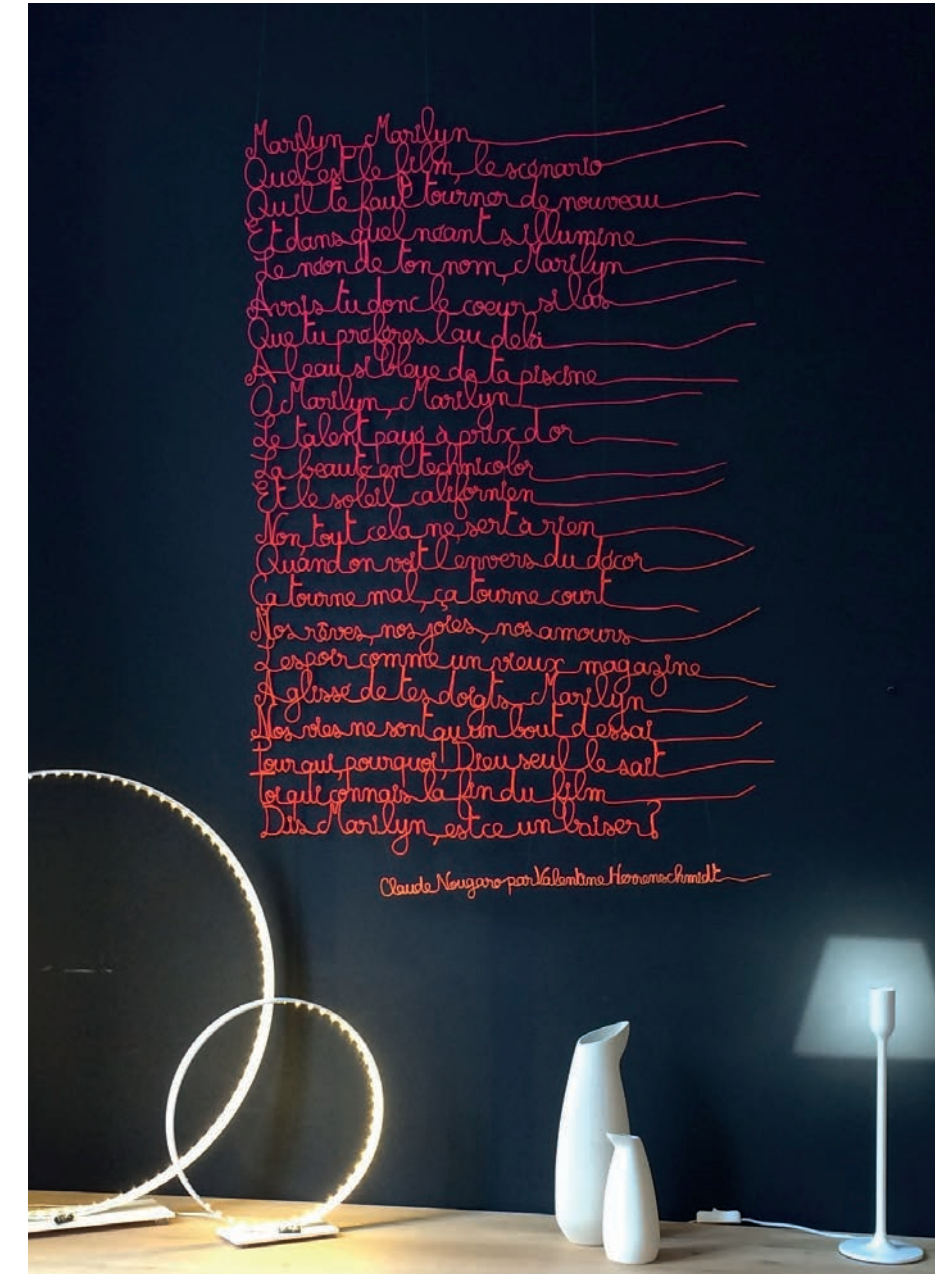 Marilyn, Marilyn
Quel est le film, le scénario
Qu'il te faut tourner de nouveau
Et dans quel néant s'illumine
Le néon de ton nom, Marilyn
Avais tu donc le coeur si las
Que tu préfères l'au delà
A l'eau si bleue de ta piscine
O Marilyn, Marilyn
Le talent payé à prix d'or
La beauté en technicolor
Et le soleil californien
Non tout cela ne sert à rien
Quand on voit l'envers du décor
Ça tourne mal, ça tourne court
Nos rêves, nos joies, nos amours
L'espoir comme un vieux magazine
A glissé de tes doigts, Marilyn
Nos vies ne sont qu'un bout d'essai
Pour qui, pourquoi, Dieu seul le sait
Toi qui connais la fin du film
Dis Marilyn, est ce un baiser?
Claude Nougaro par Valentine Herrenschmidt